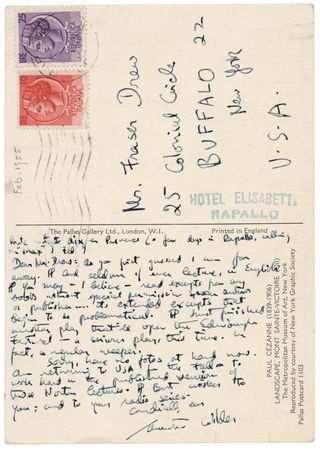 25
REPUBBLICA
ITALIANA
Feb. 1955
Mr. Fraser Drew
25 Colonial Circle
BUFFALO 22
New York
U.S.A.
HOTEL ELISABETTA
RAPALLO
The Pallas Gallery Ltd., London, W.I.
Printed in England
PAUL CEZANNE (1839-1906)
LANDSCAPE, MONT SAINTE-VICTOIRE
The Metropolitan Museum of Art, New York
Reproduced by courtesy of New York Graphic Society
Pallas Postcard 1103
in Provence for few days in Rapallo, calling
on Max
Dear Mr. Drew: as you first guessed I am far
away. I seldom if ever lecture, in English
I may – I believe – read excerpts from any
books without special permission from author
or publisher. To extend excerpts that
to be problematical. I must finished
another play that'll open the Edinburgh
Festival – a serious play, this time.
fact a regular weeper.
Sorry, have no photos at hand now.
Am returning to USA in the fall & to
work hard on the published version of
those Norton lectures. All best wishes to
you; and to your radio series.
Cordially, ever
Thornton Wilder